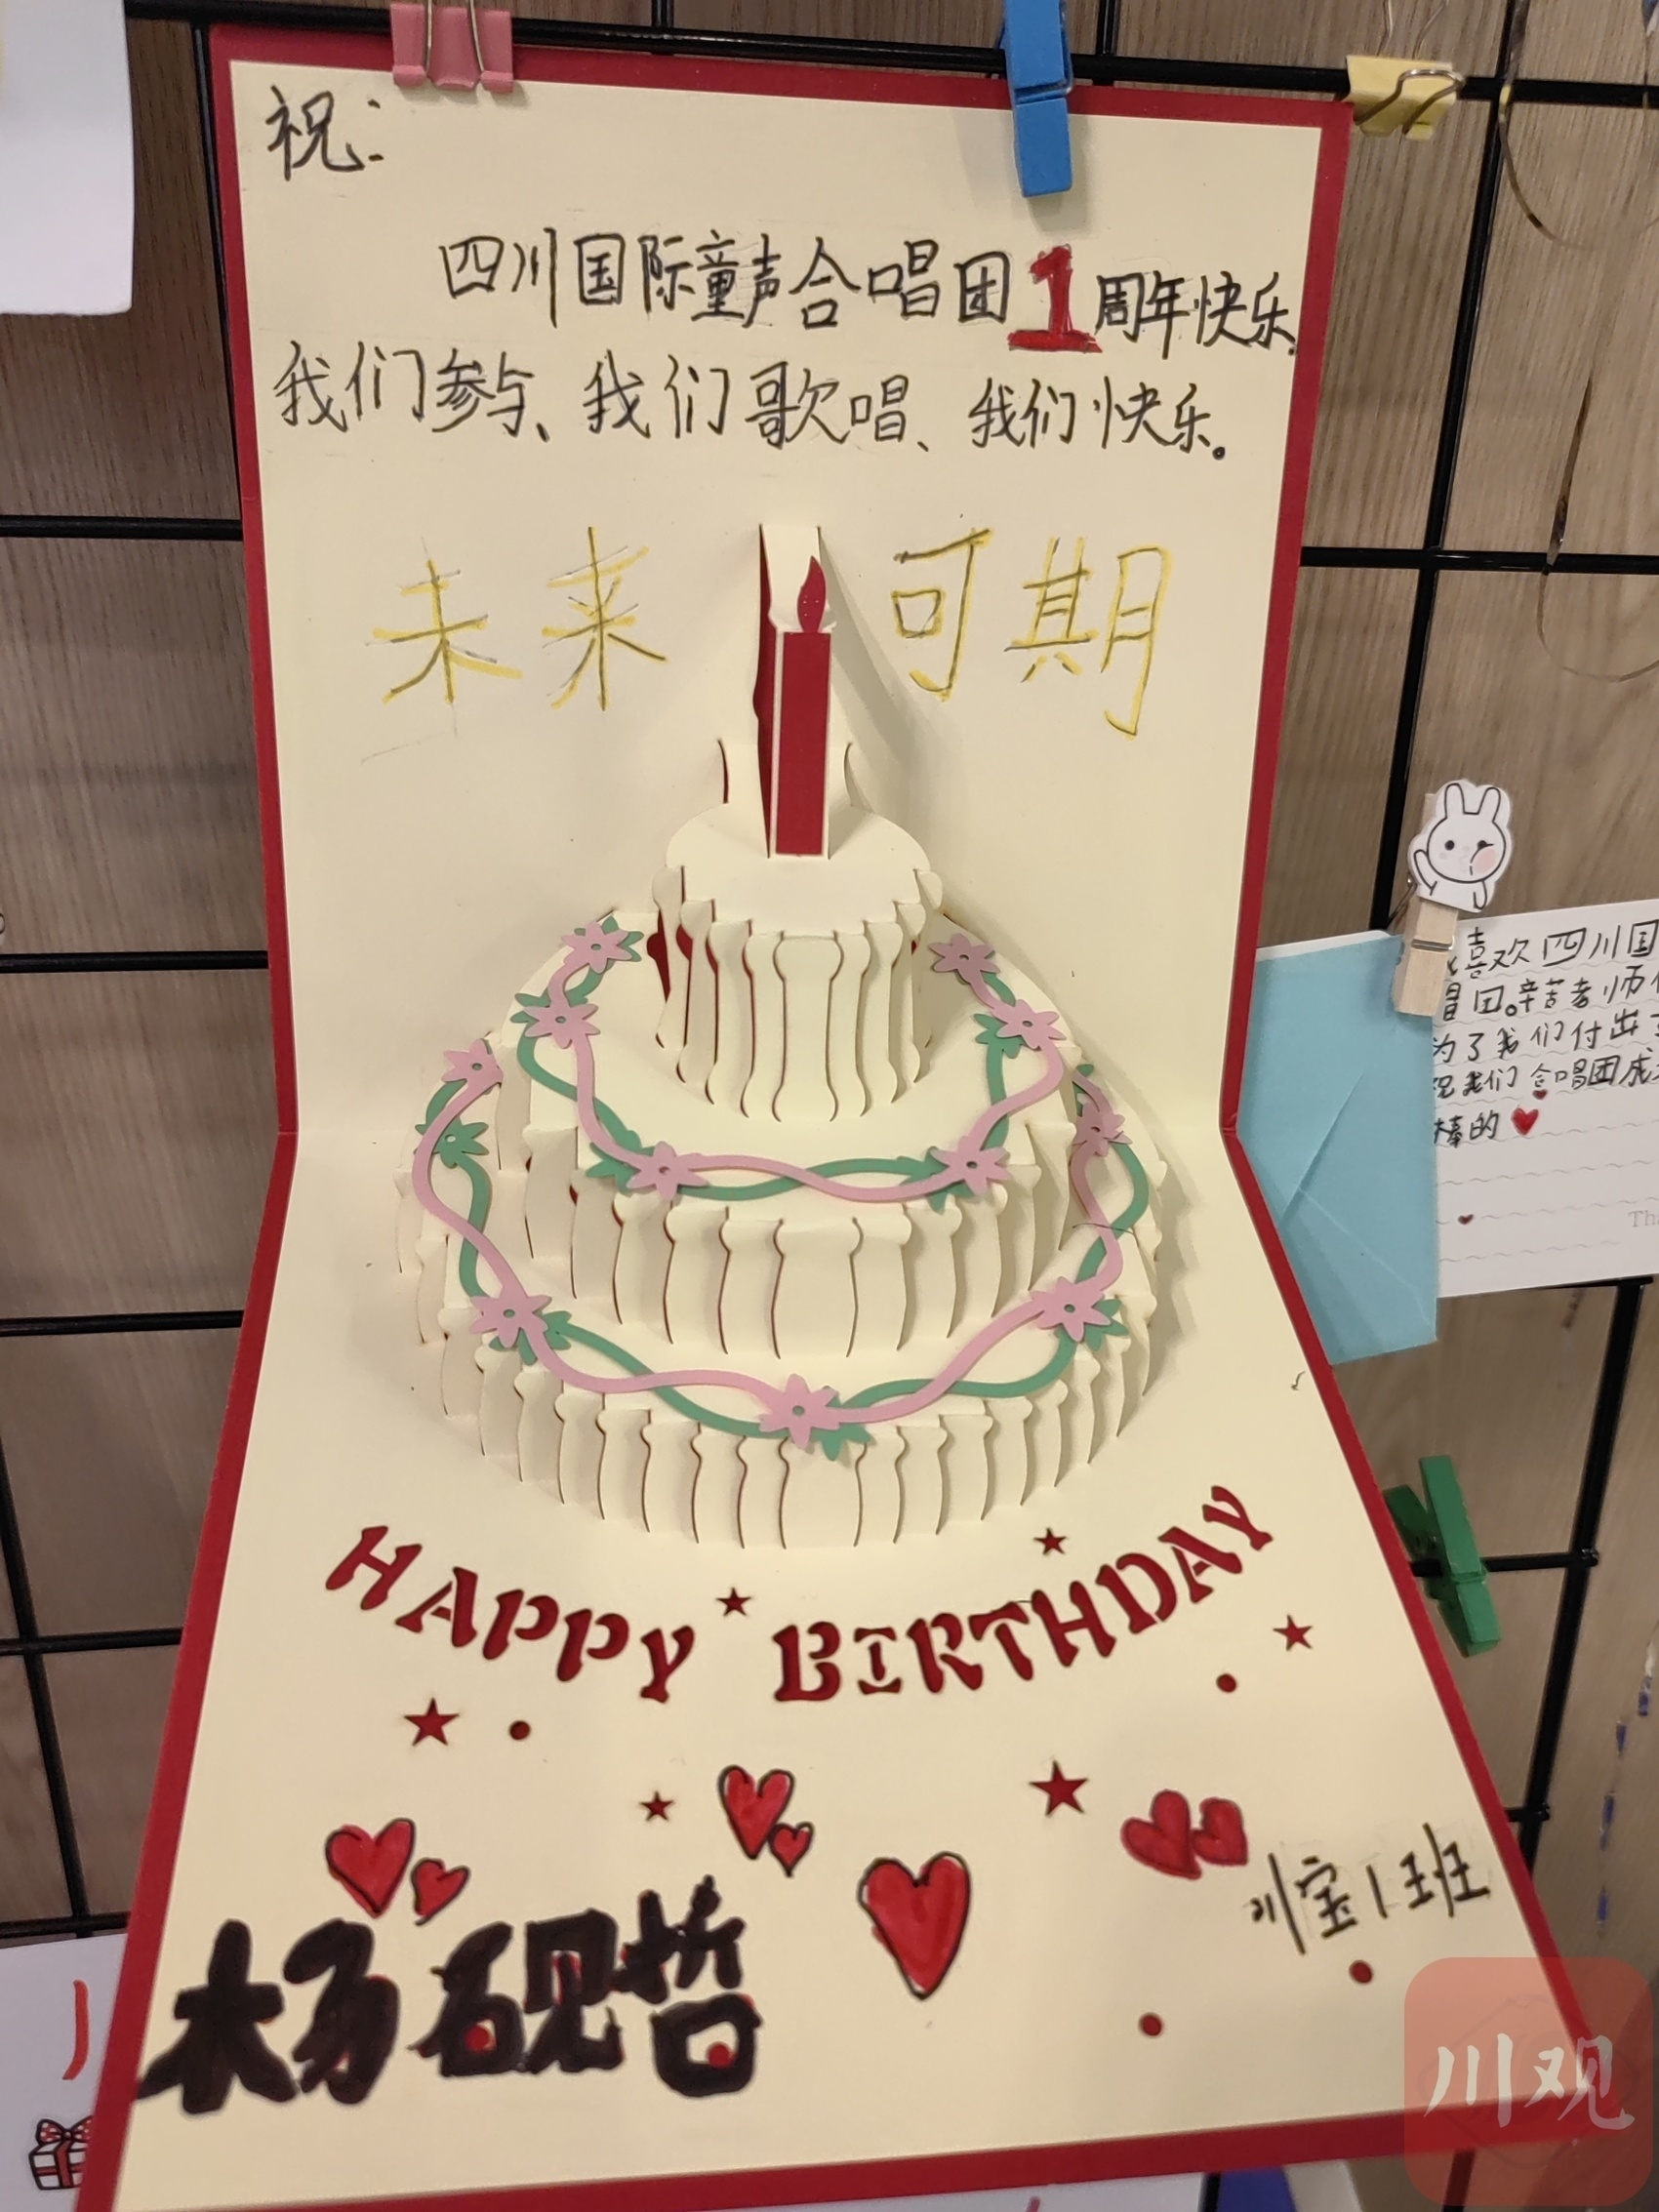 祝：
四川国际童声合唱团1周年快乐.
我们参与、我们歌唱、我们快乐。
未来可期
HAPPY BIRTHDAY
川宝1班
杨砚哲
喜欢四川国
唱团。辛苦老师
为了我们付出了
祝我们合唱团成
棒的
Th
川观